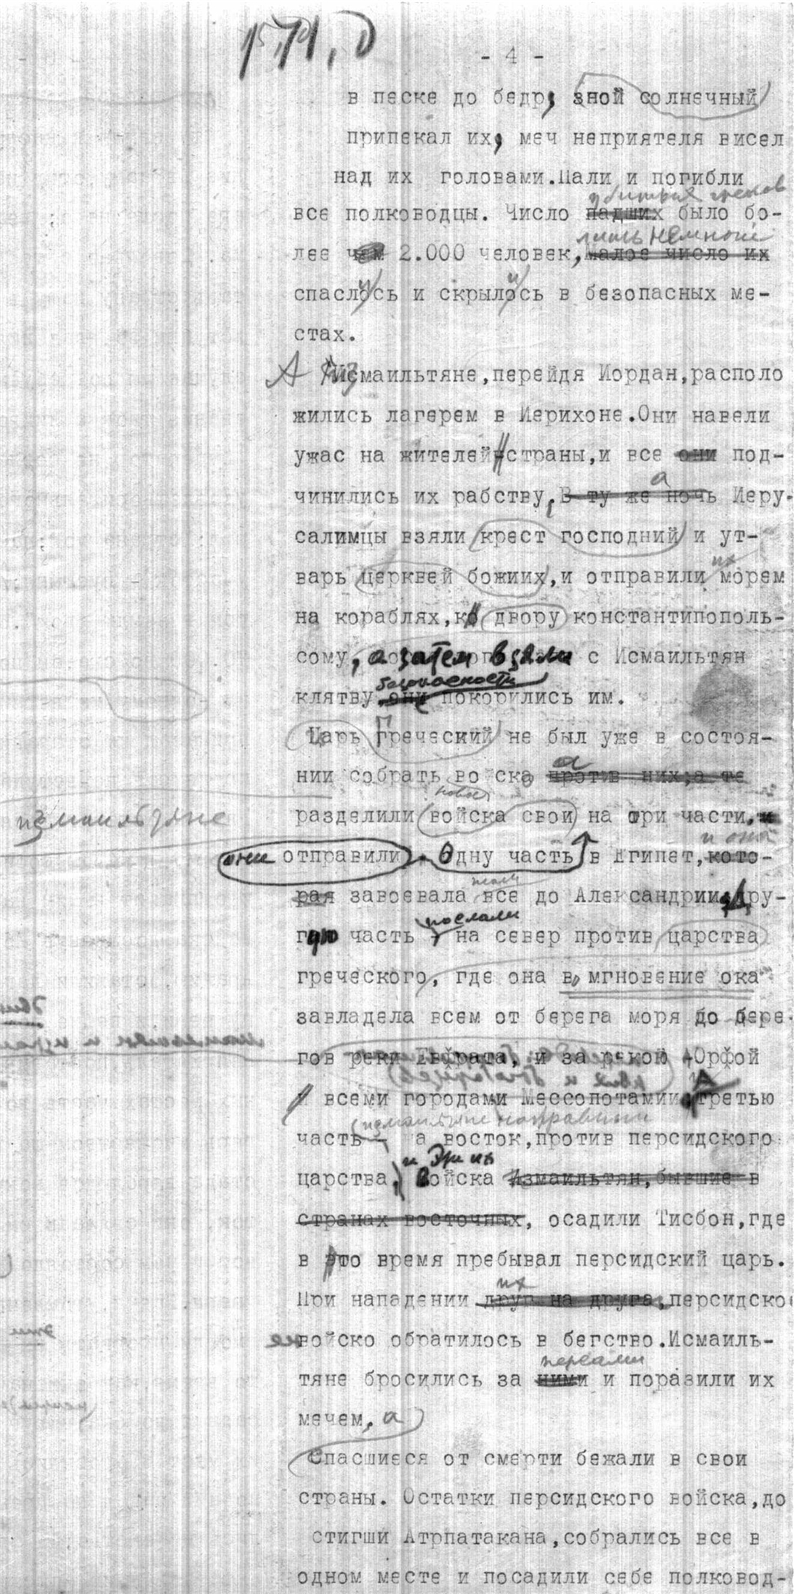 - 4 -
в песке до бедр, зной солнечный
припекал их, меч неприятеля висел
над их головами.Пали и погибли
убитых
все полководцы. Число падших было бо-
лишь немногие
лее чем 2.000 человек, малое число их
спаслось и скрылось в безопасных ме-
стах.
Исмаильтяне,перейдя Иордан,располо
жились лагерем в Иерихоне.Они навели
ужас на жителей страны,и все они под-
а
чинились их рабству, В ту же ночь Иеру-
салимцы взяли крест господний и ут-
их
варь церквей божиих,и отправили морем
на кораблях,ко двору константипополь-
сому, а затем взяли с Исмаильтян
безопасности
клятву они покорились им.
Царь греческий не был уже в состоя-
а
нии собрать войска против них;а те
новое
разделили войска свои на три части,и
измаильтяне
и она
они отправили Одну часть в Египет,кото-
рая завоевала все до Александрии, Дру-
послали
гую часть - на север против царства
греческого, где она в мгновение ока
завладела всем от берега моря до бере
гов реки Евфрата, и за рекой Орфой
и всеми городами Мессопотамии, А третью
измаильтяне направили
часть - а восток,против персидского
и Эти
царства, войска Измаильтян,бывшие в
странах восточных, осадили Тисбон,где
в это время пребывал персидский царь.
их
При нападении друг на друга,персидско
войско обратилось в бегство.Исмаиль-
персами
тяне бросились за ними и поразили их
мечем, а
Спасшиеся от смерти бежали в свои
страны. Остатки персидского войска,до
стигши Атрпатакана,собрались все в
одном месте и посадили себе полковод-